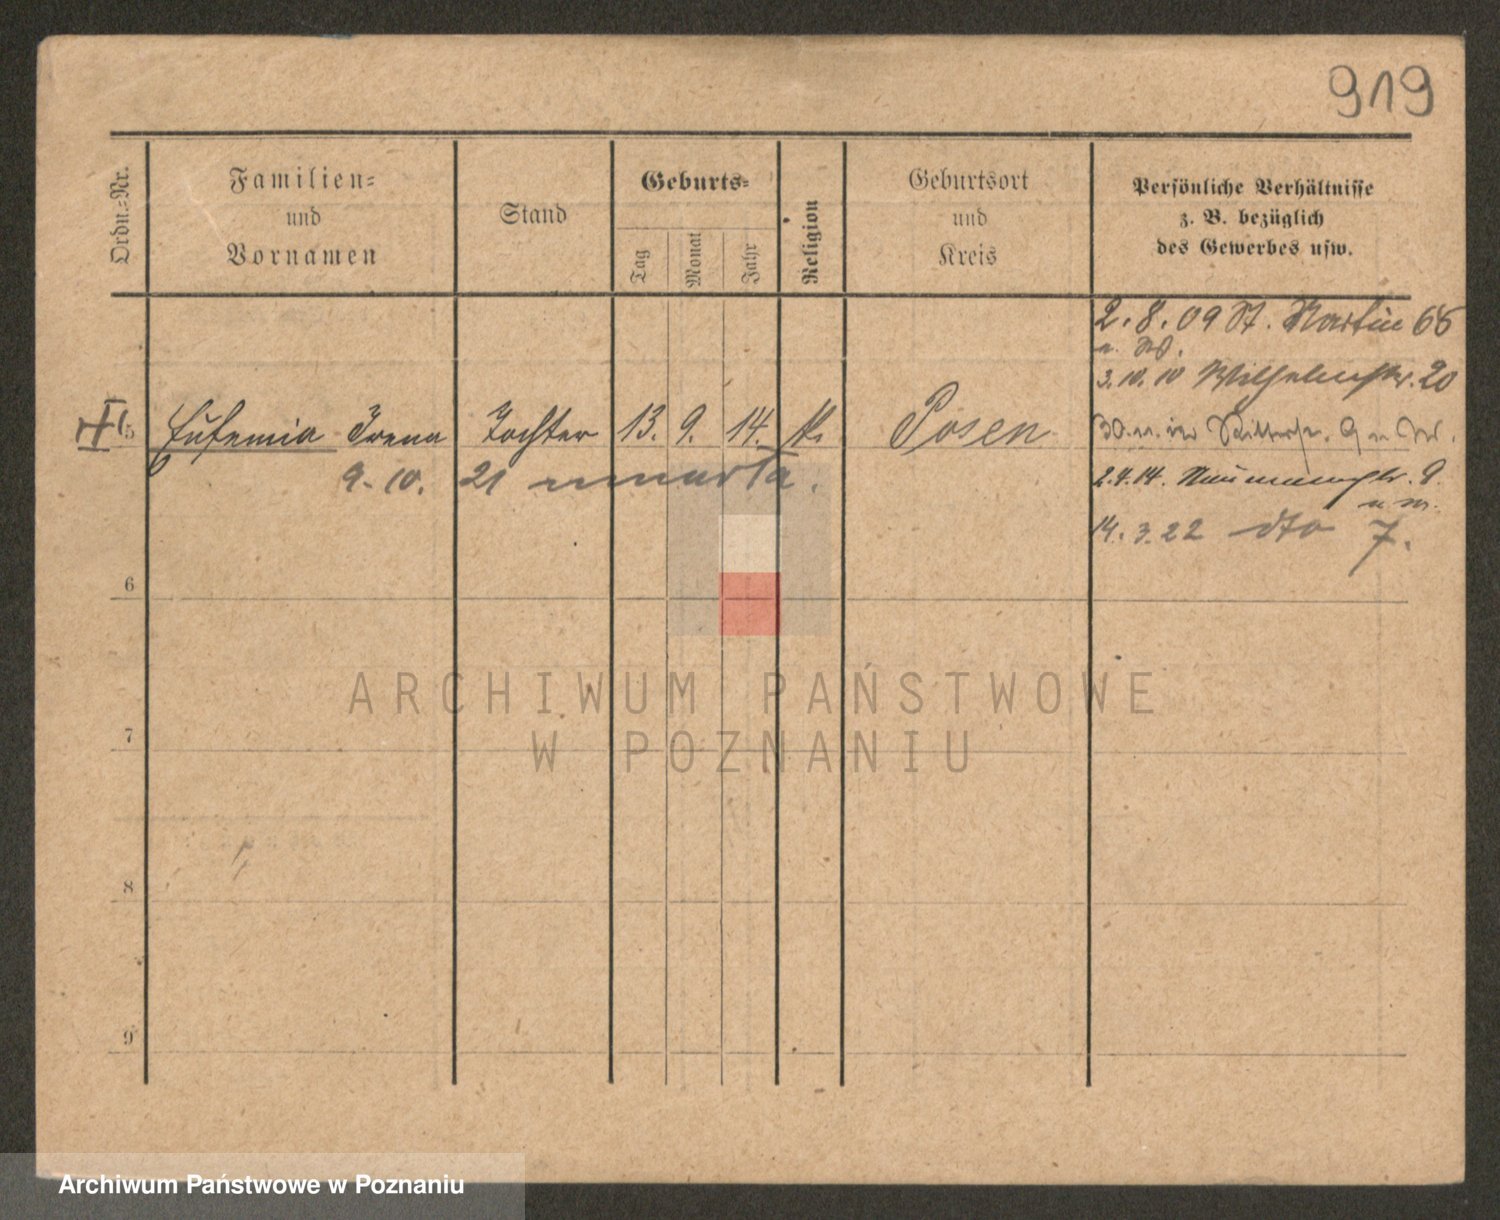 919
Ordn.-Nr.
Familien-
und
Vornamen
Stand
Geburts-
Tag
Monat
Jahr
Religion
Geburtsort
und
Kreis
Persönliche Verhältnisse
z. B. bezüglich
des Gewerbes usw.
2. 8. 09 St. Martin 66
3. 10. 10 Wilhelmstr. 20
5 Eufemia Irena Tochter 13. 9. 14. k. Posen
9. 10. 21 umarła.
2.4.14. Naumannstr. 9.
14. 3. 22 dto 7.
6
7
8
9
ARCHIWUM PAŃSTWOWE
W POZNANIU
Archiwum Państwowe w Poznaniu